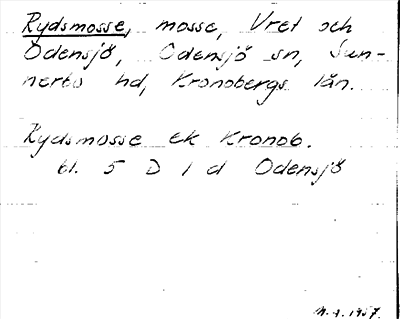 Rydsmosse, mosse, Vret och
Odensjö, Odensjö sn, Sun-
nerbo hd, Kronobergs län.
Rydsmosse ek Kronob.
bl. 5 D 1 d Odensjö
1957.